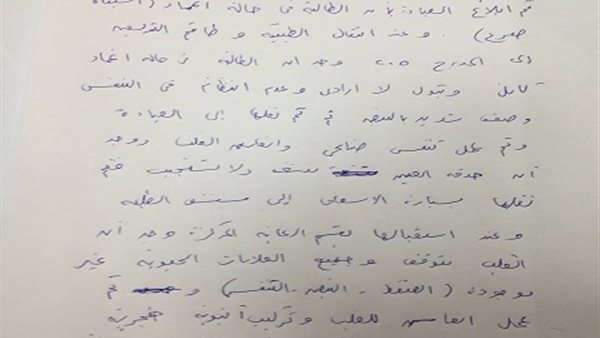 تم ابلاغ العيادة بأن الطالبة فى حالة اغماء (اشتباه
صرع) . وعند انتقال الطبيبة و طاقم التمريض
الى المدرج ٢٠٥ وجد ان الطالبة فى حالة اغماء
كامل وتبول لا ارادى وعدم انتظام فى التنفس
وضعف شديد بالنبض ثم تم نقلها إلى العيادة
وتم عمل تنفس صناعى وانعاش القلب ووجد
أن حدقة العين متسعة ولا تستجيب فتم
نقلها بسيارة الاسعاف إلى مستشفى الطلبة
وعند استقبالها بقسم العناية المركزة وجد أن
القلب متوقف وجميع العلامات الحيوية غير
موجودة (الضغط - النبض - التنفس) و تم
عمل انعاش للقلب وتركيب أنبوبة حنجرية